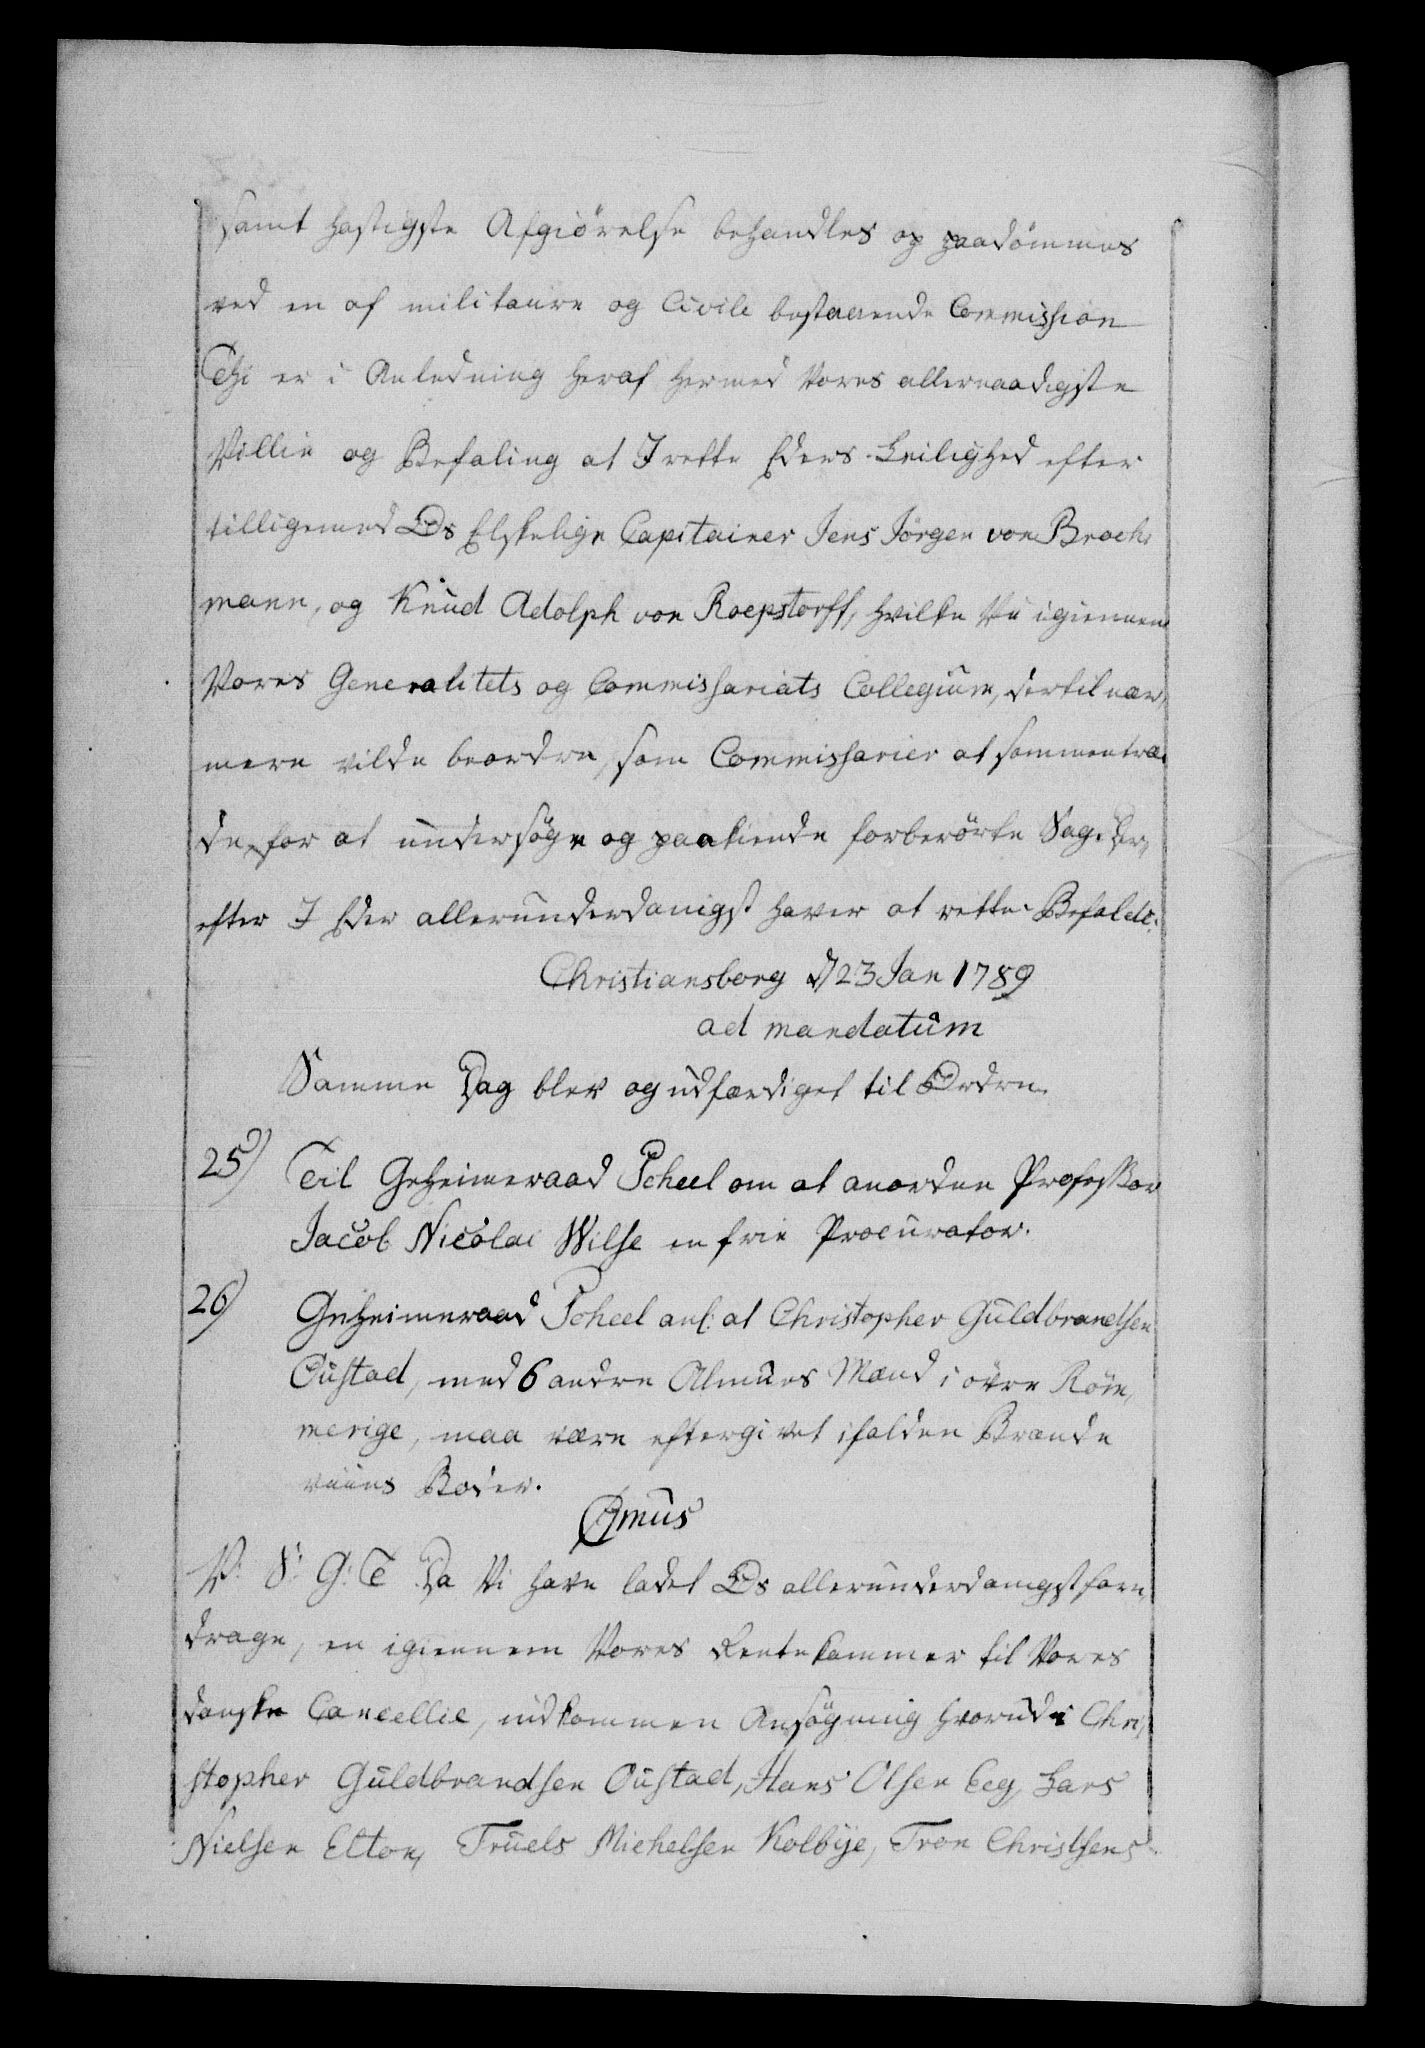 samt hastigste Afgiörelse behandles og paadömmes
ved en af militaire og Civile bestaaende Commission
Thi er i Anledning heraf hermed Vores allernaadigste
Villie og Befaling at I rette Eders Leilighed efter
tilligemed Os Elskelige Capitainer Jens Jörgen von Broch,
mann, og Knud Adolph von Roepstorff, hvilke Vii igiennem
Vores Generalitets og Commissariats Collegium, dertil nær,
mere vilde beordre, som Commissarier at sammentræ,
de, for at undersöge og paakiende forberörte Sag. Der,
efter I Eder allerunderdanigst haver at rette. Befalde.
Christiansborg d 23 Jan 1789
ad mandatum
Samme Dag blev og udfærdiget til Ordre.
25) Til Geheimeraad Scheel om at anordne Professor
Jacob Nicolai Wilse en frie Procurator.
26) Geheimeraad Scheel anl: at Christopher Guldbrandsen
Oustad, med 6 andre Almues Mænd i övre Rom,
merige, maa være eftergivet ifalden Brænde
viins Böder.
C7mus
V: S: G: T Da Vi have ladet Os allerunderdanigst fore,
drage, en igiennem Vores Rentekammer til Vores
danske Cancellie, indkommen Ansögning hvorudi Chri,
stopher Guldbrandsen Oustad, Hans Olsen Eeg, Lars
Nielsen Elton, Truels Michelsen Kolbye, Tron Christsens